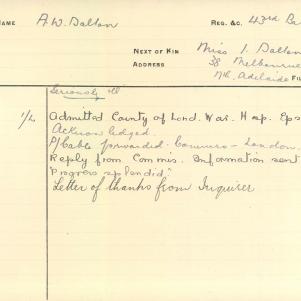 NAME A.W. Dalton REG. &C. 43rd
NEXT OF KIN Miss I. Dalton
ADDRESS 38 Melbourne
Nth. Adelaide
Seriously ill
Admitted County of Lond. War. Hosp. Eps
Acknowledged.
P/Cable forwarded. Commrs - London.
Reply from Commis. Information sent
"Progress splendid".
Letter of thanks from Inquirer